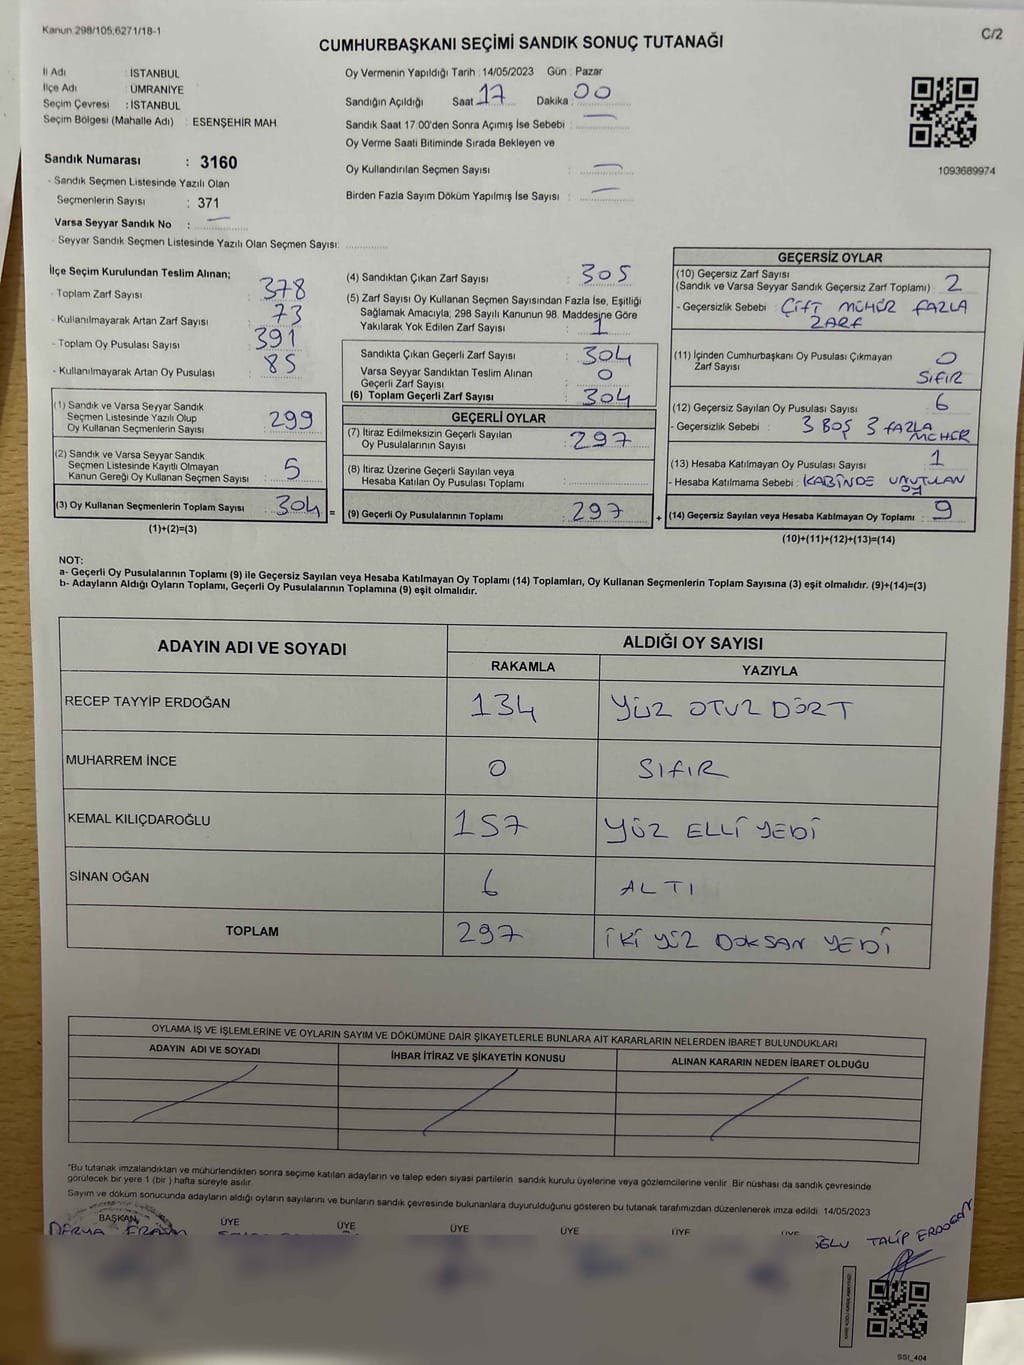 Kanun 298/105,6271/18-1
C/2
CUMHURBAŞKANI SEÇİMİ SANDIK SONUÇ TUTANAĞI
İl Adı : İSTANBUL
İlçe Adı : ÜMRANİYE
Seçim Çevresi : İSTANBUL
Seçim Bölgesi (Mahalle Adı) : ESENŞEHİR MAH.
Sandık Numarası : 3160
- Sandık Seçmen Listesinde Yazılı Olan
Seçmenlerin Sayısı : 371
Varsa Seyyar Sandık No : —
- Seyyar Sandık Seçmen Listesinde Yazılı Olan Seçmen Sayısı:
Oy Vermenin Yapıldığı Tarih : 14/05/2023 Gün : Pazar
Sandığın Açıldığı Saat 17 Dakika : 00
Sandık Saat 17:00'den Sonra Açımış İse Sebebi : —
Oy Verme Saati Bitiminde Sırada Bekleyen ve
Oy Kullandırılan Seçmen Sayısı : —
Birden Fazla Sayım Döküm Yapılmış İse Sayısı : —
1093689974
İlçe Seçim Kurulundan Teslim Alınan;
- Toplam Zarf Sayısı : 378
- Kullanılmayarak Artan Zarf Sayısı : 73
- Toplam Oy Pusulası Sayısı : 391
- Kullanılmayarak Artan Oy Pusulası : 85
(1) Sandık ve Varsa Seyyar Sandık
Seçmen Listesinde Yazılı Olup
Oy Kullanan Seçmenlerin Sayısı : 299
(2) Sandık ve Varsa Seyyar Sandık
Seçmen Listesinde Kayıtlı Olmayan
Kanun Gereği Oy Kullanan Seçmen Sayısı : 5
(3) Oy Kullanan Seçmenlerin Toplam Sayısı : 304 =
(1)+(2)=(3)
(4) Sandıktan Çıkan Zarf Sayısı : 305
(5) Zarf Sayısı Oy Kullanan Seçmen Sayısından Fazla İse, Eşitliği
Sağlamak Amacıyla; 298 Sayılı Kanunun 98. Maddesine Göre
Yakılarak Yok Edilen Zarf Sayısı : 1
Sandıkta Çıkan Geçerli Zarf Sayısı : 304
Varsa Seyyar Sandıktan Teslim Alınan
Geçerli Zarf Sayısı : 0
(6) Toplam Geçerli Zarf Sayısı : 304
GEÇERLİ OYLAR
(7) İtiraz Edilmeksizin Geçerli Sayılan
Oy Pusulalarının Sayısı : 297
(8) İtiraz Üzerine Geçerli Sayılan veya
Hesaba Katılan Oy Pusulası Toplamı :
(9) Geçerli Oy Pusulalarının Toplamı : 297 +
GEÇERSİZ OYLAR
(10) Geçersiz Zarf Sayısı
(Sandık ve Varsa Seyyar Sandık Geçersiz Zarf Toplamı) : 2
- Geçersizlik Sebebi : ÇİFT MÜHÜR FAZLA
ZARF
(11) İçinden Cumhurbaşkanı Oy Pusulası Çıkmayan
Zarf Sayısı : 0
SIFIR
(12) Geçersiz Sayılan Oy Pusulası Sayısı : 6
- Geçersizlik Sebebi : 3 BOŞ 3 FAZLA
MÜHÜR
(13) Hesaba Katılmayan Oy Pusulası Sayısı : 1
- Hesaba Katılmama Sebebi : KABİNDE UNUTULAN
OY
(14) Geçersiz Sayılan veya Hesaba Katılmayan Oy Toplamı : 9
(10)+(11)+(12)+(13)=(14)
NOT:
a- Geçerli Oy Pusulalarının Toplamı (9) ile Geçersiz Sayılan veya Hesaba Katılmayan Oy Toplamı (14) Toplamları, Oy Kullanan Seçmenlerin Toplam Sayısına (3) eşit olmalıdır. (9)+(14)=(3)
b- Adayların Aldığı Oyların Toplamı, Geçerli Oy Pusulalarının Toplamına (9) eşit olmalıdır.
ADAYIN ADI VE SOYADI
ALDIĞI OY SAYISI
RAKAMLA
YAZIYLA
RECEP TAYYİP ERDOĞAN 134 YÜZ OTUZ DÖRT
MUHARREM İNCE 0 SIFIR
KEMAL KILIÇDAROĞLU 157 YÜZ ELLİ YEDİ
SİNAN OĞAN 6 ALTI
TOPLAM 297 İKİ YÜZ DOKSAN YEDİ
OYLAMA İŞ VE İŞLEMLERİNE VE OYLARIN SAYIM VE DÖKÜMÜNE DAİR ŞİKAYETLERLE BUNLARA AİT KARARLARIN NELERDEN İBARET BULUNDUKLARI
ADAYIN ADI VE SOYADI
İHBAR İTİRAZ VE ŞİKAYETİN KONUSU
ALINAN KARARIN NEDEN İBARET OLDUĞU
*Bu tutanak imzalandıktan ve mühürlendikten sonra seçime katılan adayların ve talep eden siyasi partilerin sandık kurulu üyelerine veya gözlemcilerine verilir. Bir nüshası da sandık çevresinde
görülecek bir yere 1 (bir ) hafta süreyle asılır.
Sayım ve döküm sonucunda adayların aldığı oyların sayılarını ve bunların sandık çevresinde bulunanlara duyurulduğunu gösteren bu tutanak tarafımızdan düzenlenerek imza edildi. 14/05/2023
BAŞKAN ÜYE ÜYE ÜYE ÜYE ÜYE ÜYE
DERYA
OĞLU TALİP ERDOĞAN
SSI_404